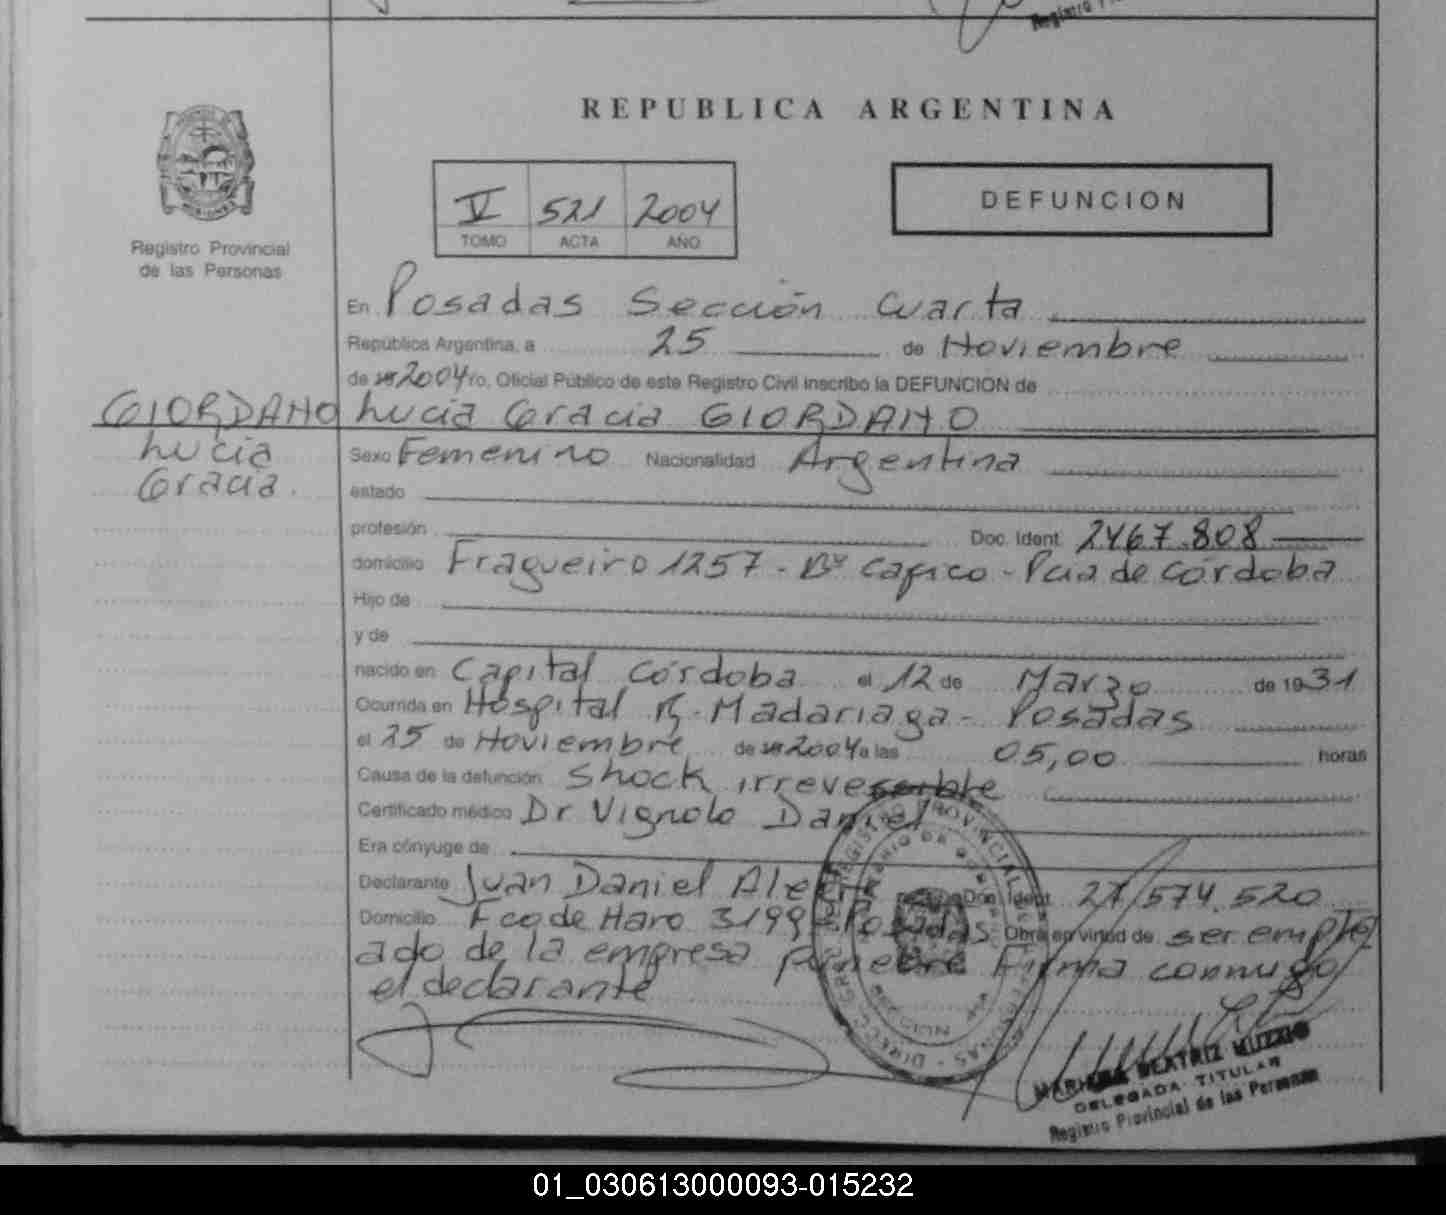 REPUBLICA ARGENTINA
V 521 2004
TOMO ACTA AÑO
DEFUNCION
Registro Provincial
de las Personas
En Posadas Sección Cuarta
República Argentina, a 25 de Noviembre
de 2004 yo, Oficial Público de este Registro Civil inscribo la DEFUNCION de
GIORDANO Lucia Gracia GIORDANO
Lucia
Gracia.
Sexo Femenino Nacionalidad Argentina
estado
profesión Doc. Ident. 2467.808
domicilio Fragueiro 1257 - Bº Cafico - Pcia de Córdoba
Hijo de
y de
nacido en Capital Córdoba el 12 de Marzo de 1931
Ocurrida en Hospital R. Madariaga - Posadas
el 25 de Noviembre de 2004 a las 05,00 horas
Causa de la defunción Shock irreversible
Certificado médico Dr Vignolo Daniel
Era cónyuge de
Declarante Juan Daniel Doc. Ident. 27.574.520
Domicilio Fco de Haro 3199 - Posadas Obra en virtud de ser emple
ado de la empresa funebre Firma conmigo
el declarante
BEATRIZ MUZZIO
DELEGADA TITULAR
Registro Provincial de las Personas
01_030613000093-015232